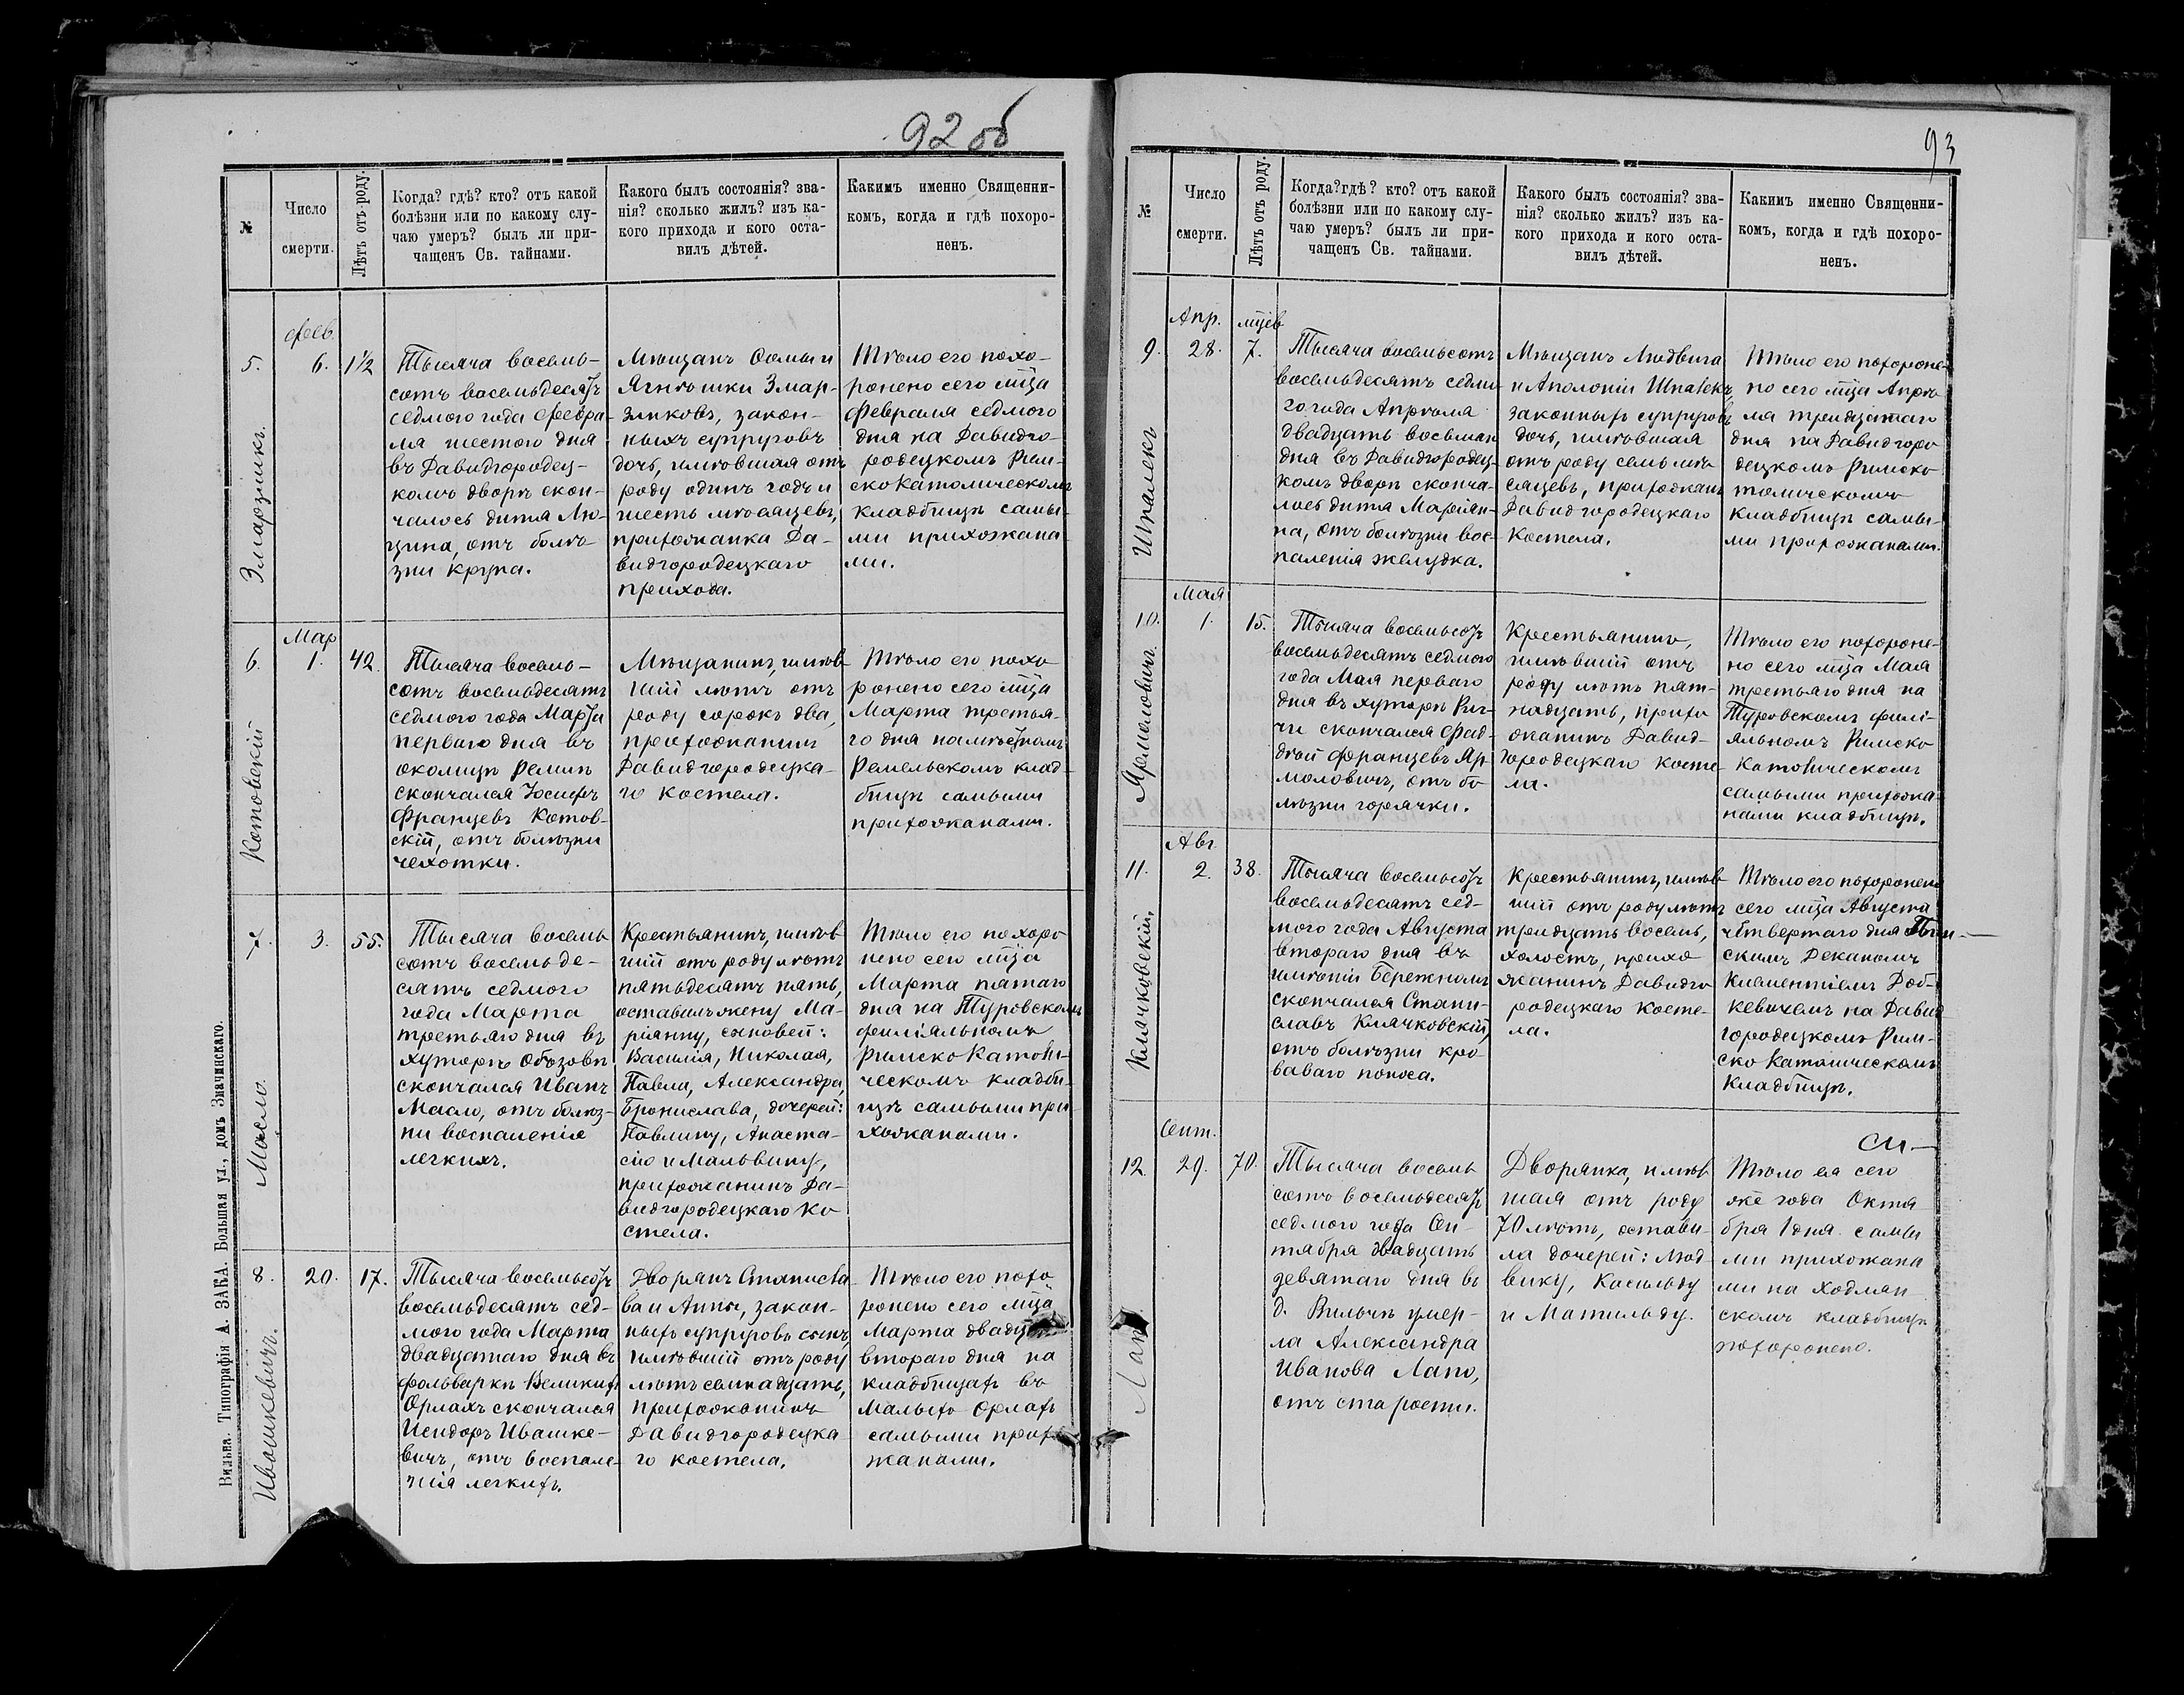 92 об
№
Число
смерти.
Лѣтъ отъ роду.
Когда? гдѣ? кто? отъ какой
болѣзни или по какому слу-
чаю умеръ? былъ ли при-
чащенъ Св. тайнами.
Какого былъ состоянія? зва-
нія? сколько жилъ? изъ ка-
кого прихода и кого оста-
вилъ дѣтей.
Какимъ именно Священни-
комъ, когда и гдѣ похоро-
ненъ.
5.
Змарзликъ.
фев.
6.
1½
Тысяча восемь-
сотъ восемьдесятъ
седмого года Февра-
ля шестого дня
въ Давидгородец-
комъ дворѣ скон-
чалось дитя Лю-
цина, отъ болѣ-
зни крупа.
Мѣщанъ Ѳомы и
Агнѣшки Змар-
зликовъ, закон-
ныхъ супруговъ
дочь, имѣвшая отъ
роду одинъ годъ и
шесть мѣсяцевъ,
прихожанка Да-
видгородецкаго
прихода.
Тѣло его похо-
ронено сего мца
Февраля седмого
дня на Давидго-
родецкомъ Рим-
ско Католическомъ
кладбищѣ самы-
ми прихожана
ми.
6.
Котовскій
Мар
1.
42.
Тысяча восемь-
сотъ восемьдесятъ
седмого года Марта
перваго дня въ
околицѣ Ремлѣ
скончался Іосифъ
Францевъ Котов-
скій, отъ болѣзни
чехотки.
Мѣщанинъ, имѣв
шій лѣтъ отъ
роду сорокъ два,
прихожанинъ
Давидгородецка-
го костела.
Тѣло его похо
ронено сего мца
Марта третья-
го дня на мѣстномъ
Ремельскомъ клад-
бищѣ самыми
прихожанами.
7.
Масло.
3.
55.
Тысяча восемь
сотъ восемьде-
сятъ седмого
года Марта
третьяго дня въ
хуторѣ Обзовѣ
скончался Иванъ
Масло, отъ болѣз-
ни воспаленія
легкихъ.
Крестьянинъ, имѣв
шій отъ роду лѣтъ
пятьдесятъ пять,
оставилъ жену Ма-
ріанну, сыновей:
Василія, Николая,
Павла, Александра,
Бронислава, дочерей:
Павлину, Анаста-
сію и Мальвину,
прихожанинъ Да-
видгородецкаго Ко
стела.
Тѣло его похоро
нено сего мца
Марта пятаго
дня на Туровскомъ
филіальномъ
Римско Католи-
ческомъ кладби-
щѣ самыми при
хожанами.
8.
Ивашкевичъ.
20.
17.
Тысяча восемьсотъ
восемьдесятъ сед-
мого года Марта
двадцатаго дня въ
фольваркѣ Великихъ
Орлахъ скончался
Исидоръ Ивашке-
вичъ, отъ воспале-
нія легкихъ.
Дворянъ Станисла-
ва и Анны, закон-
ныхъ супруговъ сынъ,
имѣвшій отъ роду
лѣтъ семнадцать,
прихожанинъ
Давидгородецка
го костела.
Тѣло его похо
ронено сего мца
Марта двадц
втораго дня на
кладбищахъ въ
Малыхъ Орлахъ
самыми прихо
жанами.
Вильна. Типографія А. ЗАКА. Большая ул., домъ Значинскаго.
93
№
Число
смерти.
Лѣтъ отъ роду.
Когда? гдѣ? кто? отъ какой
болѣзни или по какому слу-
чаю умеръ? былъ ли при-
чащенъ Св. тайнами.
Какого былъ состоянія? зва-
нія? сколько жилъ? изъ ка-
кого прихода и кого оста-
вилъ дѣтей.
Какимъ именно Священни-
комъ, когда и гдѣ похоро-
ненъ.
9.
Шпалекъ
Апр.
28.
мцев
7.
Тысяча восемьсотъ
восемьдесятъ седмо
го года Апрѣля
двадцать восьмаго
дня въ Давидгородец-
комъ дворѣ сконча-
лось дитя Маріан-
на, отъ болѣзни вос-
паленія желудка.
Мѣщанъ Людвига
и Аполоніи Шпалекъ
законныхъ супруговъ
дочь, имѣвшая
отъ роду семь мѣ
сяцевъ, прихожанъ
Давидгородецкаго
Костела.
Тѣло его похороне-
но сего мца Апрѣ
ля тридцатаго
дня на Давидгоро
децкомъ Римско
толическомъ
кладбищѣ самы-
ми прихожанами.
10.
Ярмоловичъ.
Мая
1.
15.
Тысяча восемьсотъ
восемьдесятъ седмого
года Мая перваго
дня въ хуторѣ Ри-
чи скончался Фад-
дѣй Францевъ Яр
моловичъ, отъ бо
лѣзни горячки.
Крестьянинъ,
имѣвшій отъ
роду лѣтъ пят-
надцать, прихо
жанинъ Давид-
городецкаго косте-
ла.
Тѣло его похороне-
но сего мца Мая
третьяго дня на
Туровскомъ филі-
яльномъ Римско
Католическомъ
самыми прихожа-
нами кладбищѣ.
11.
Клачковскій,
Авг
2.
38.
Тысяча восемьсотъ
восемьдесятъ сед-
мого года Августа
втораго дня въ
имѣніи Бережномъ
скончался Стани-
славъ Клачковскій,
отъ болѣзни кро-
ваваго поноса.
Крестьянинъ, имѣв
шій отъ роду лѣтъ
тридцать восемь,
холостъ, прихо
жанинъ Давидго
родецкаго Косте-
ла.
Тѣло его похоронено
сего мца Августа
четвертаго дня Пин-
скимъ Деканомъ
Климентіемъ Роб-
кевичемъ на Давид
городецкомъ Рим-
ско католическомъ
кладбищѣ.
12.
Лап
Сент.
29.
70.
Тысяча восемь
сотъ восемьдесятъ
седмого года Сен-
тября двадцать
девятаго дня въ
д. Вильчѣ умер-
ла Александра
Иванова Лапо,
отъ старости.
Дворянка, имѣв
шая отъ роду
70 лѣтъ, остави-
ла дочерей: Люд
вику, Касильду
и Матильду.
Тѣло ея сего
же года Октя
бря 1 дня самы
ми прихожана
ми на Ходлян
скомъ кладбищѣ
похоронено.